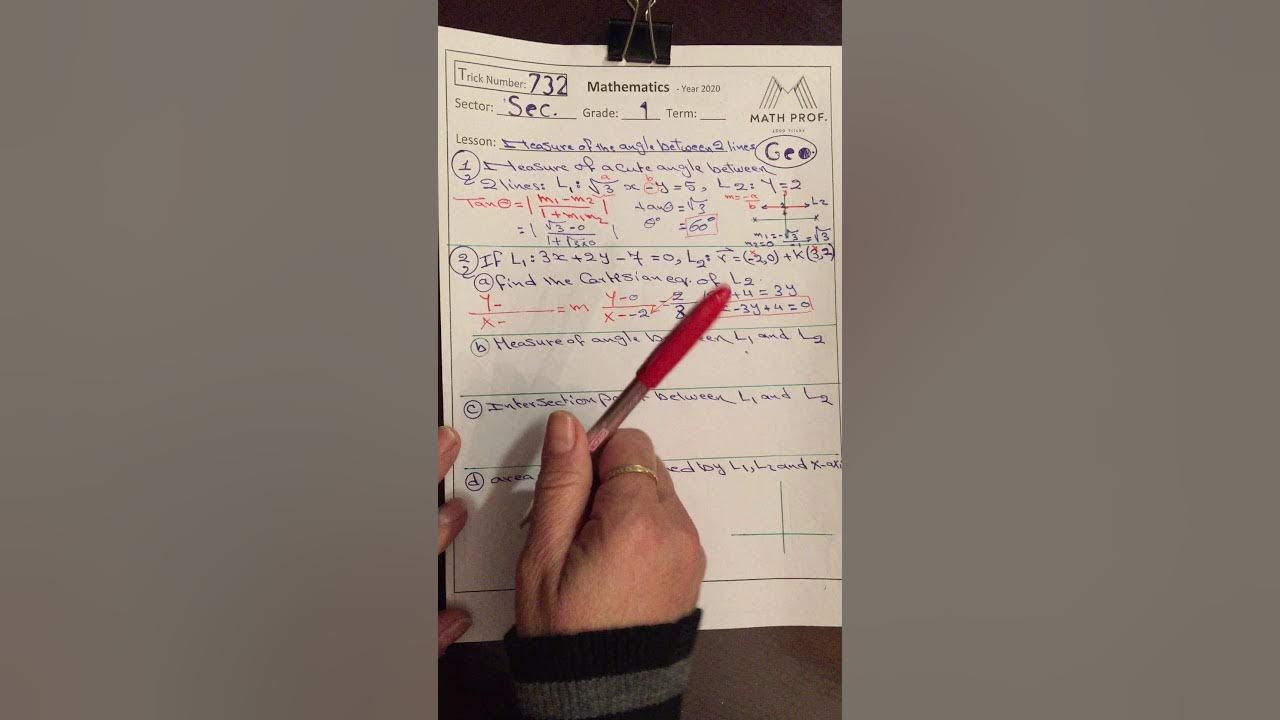 Trick Number: 732
Mathematics - Year 2020
Sector: Sec. Grade: 1 Term:
MATH PROF.
Lesson: Measure of the angle between 2 lines
Geo.
1/2 Measure of acute angle between
2 lines: L₁: √3 x - y = 5, L₂: Y = 2
a b
Tanθ = | m₁ - m₂ / 1 + m₁m₂ |
tanθ = √3
m = -a/b
L₂
= | √3 - 0 / 1 + √3×0 |
θ° = 60°
m₁ = -√3/-1 = √3
m₂ = 0
2/2 If L₁: 3x + 2y - 7 = 0, L₂: r = (-2,0) + K(3,2)
a) find the Cartesian eq. of L₂.
Y- / X- = m
Y-0 / X--2 = 2/3
+4 = 3y
-3y + 4 = 0
b) Measure of angle between L₁ and L₂
c) Intersection between L₁ and L₂
d) area by L₁, L₂ and x-axi